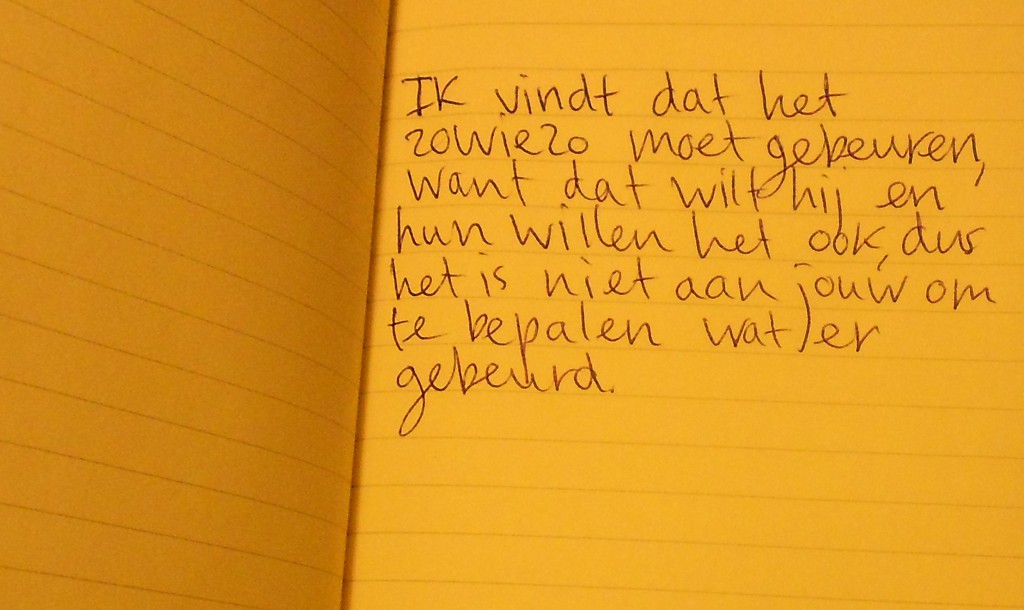 Ik vindt dat het
zowiezo moet gebeuren,
want dat wilt hij en
hun willen het ook, dus
het is niet aan jouw om
te bepalen wat er
gebeurd.